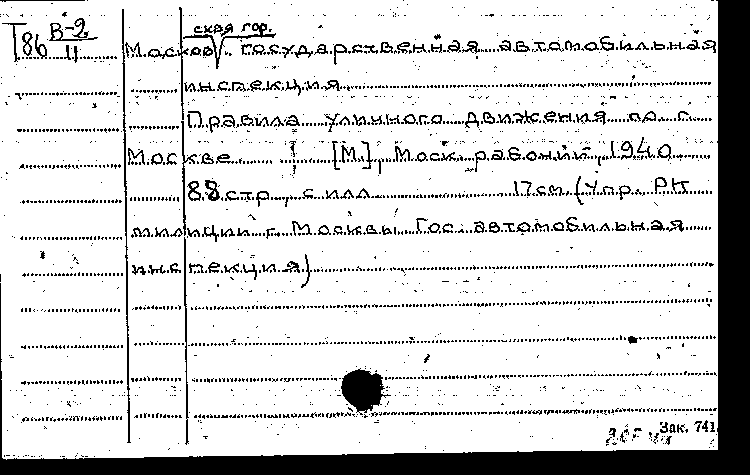 Т86 В-2/11
ская гор.
Москов государственная автомобильная
инспекция
Правила уличного движения по г.
Москве [М.], Моск. рабочий, 1940
88 стр., с илл 17 см. (Упр. РК
милиции г. Москвы Гос. автомобильная
инспекция)
Зак. 741